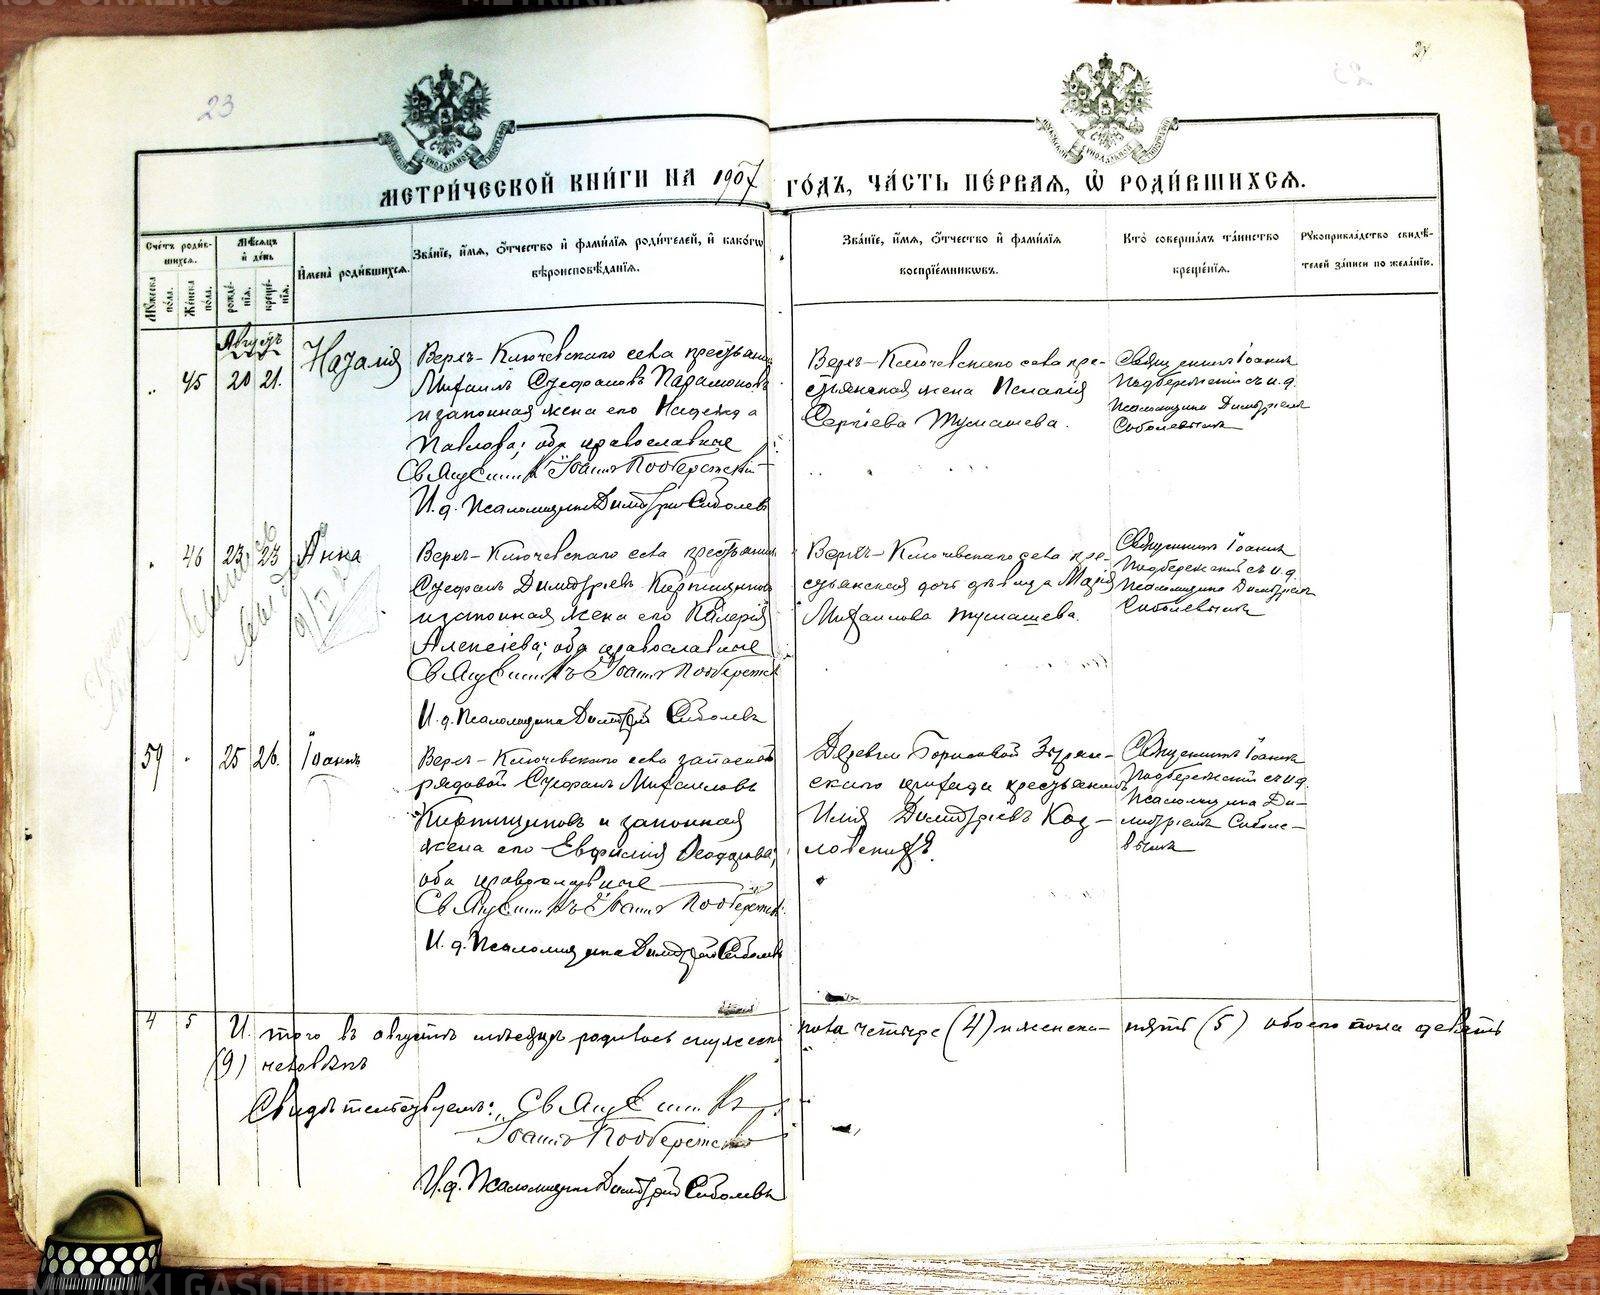 METRIKI.GASO-URAL.RU
23
24
МЕТРИ́ЧЕСКОЙ КНИ́ГИ НА 1907 ГО́ДЪ, ЧА́СТЬ ПЕ́РВАЯ, Ѡ РОДИ́ВШИХСЯ.
Сче́тъ роди́вшихся.
Му́жеска по́ла.
Же́нска по́ла.
Мѣ́сяцъ и́ де́нь
рожде́нїя.
креще́нїя.
И҆мена̀ роди́вшихся.
Зва́нїе, и҆́мя, ѻ҆́тчество и҆ фами́лїя роди́телей, и҆ како́гѡ вѣроисповѣ́данїя.
Зва́нїе, и҆́мя, ѻ҆́тчество и҆ фами́лїя воспрїе́мниковъ.
Кто̀ соверша́лъ та́инство креще́нїя.
Рꙋкоприкла́дство свидѣ́телей за́писи по жела́нїю.
Августъ
45 20 21.
Наталія
Верхъ-Ключевскаго села крестьянинъ
Михаилъ Стефановъ Парамоновъ
и законная жена его Надежда
Павлова; оба православные
Священникъ Іоаннъ Подбережскій
И. д. Псаломщика Димитрій Соболевъ
Верхъ-Ключевскаго села кре-
стьянская жена Пелагія
Сергіева Тумашева.
Священникъ Іоаннъ
Подбережскій съ и. д.
Псаломщика Димитріемъ
Соболевымъ
46 23 23
Анна
Верхъ-Ключевскаго села крестьянинъ
Стефанъ Димитріевъ Кирпищиковъ
и законная жена его Валерія
Алексіева; оба православные
Священникъ Іоаннъ Подбережскій
И. д. Псаломщика Димитрій Соболевъ
Верхъ-Ключевскаго села кре-
стьянская дочь дѣвица Марія
Михаилова Тумашева.
Священникъ Іоаннъ
Подбережскій съ и. д.
Псаломщика Димитріемъ
Соболевымъ
59 25 26.
Іоаннъ
Верхъ-Ключевскаго села запасный
рядовой Стефанъ Михаиловъ
Кирпищиковъ и законная
жена его Евфимія Ѳеодорова;
оба православные
Священникъ Іоаннъ Подбережскій
И. д. Псаломщика Димитрій Соболевъ
Деревни Борисовой
скаго прихода крестьянинъ
Илія Димитріевъ Коз-
ловскихъ.
Священникъ Іоаннъ
Подбережскій съ и. д.
Псаломщика Ди-
митріемъ Соболе-
вымъ
4 5 И того въ августѣ мѣсяцѣ родилось мужеска пола четыре (4) и женска пять (5) обоего пола девять
(9) человѣкъ
Свидѣтельствуемъ: Священникъ
Іоаннъ Подбережскій
И. д. Псаломщика Димитрій Соболевъ
METRIKI.GASO-URAL.RU
METRIKI.GASO